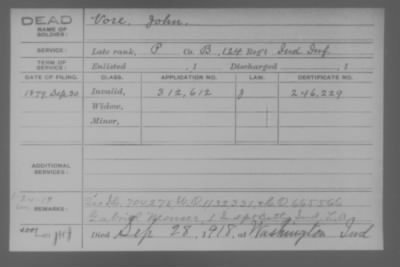 DEAD
NAME OF SOLDIER:
Vore, John.
SERVICE:
Late rank, P Co. B, 124 Reg't Ind Inf
TERM OF SERVICE:
Enlisted , 1 Discharged , 1
DATE OF FILING. CLASS. APPLICATION NO. LAW. CERTIFICATE NO.
1879 Sep 30 Invalid, 312,612 246,229
Widow,
Minor,
ADDITIONAL SERVICES:
REMARKS:
704275 1132331 665566
Gabriel 1 Ind
Died Sep 28, 1918, at Washington Ind